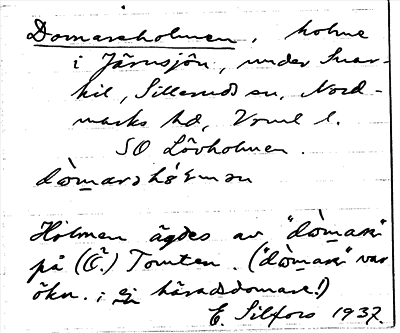 Domareholmen, holme
i Järnsjön, under Snar-
kil, Sillerud sn, Nord-
marks hd, Vrml l.
SO Lövholmen.
dòmarəhólmən
Holmen ägdes av "dòmaṙ"
på (Ö.) Tomten. ("dòmaṙ" var
ökn. ; ej häradsdomare!)
E. Silfors 1937.